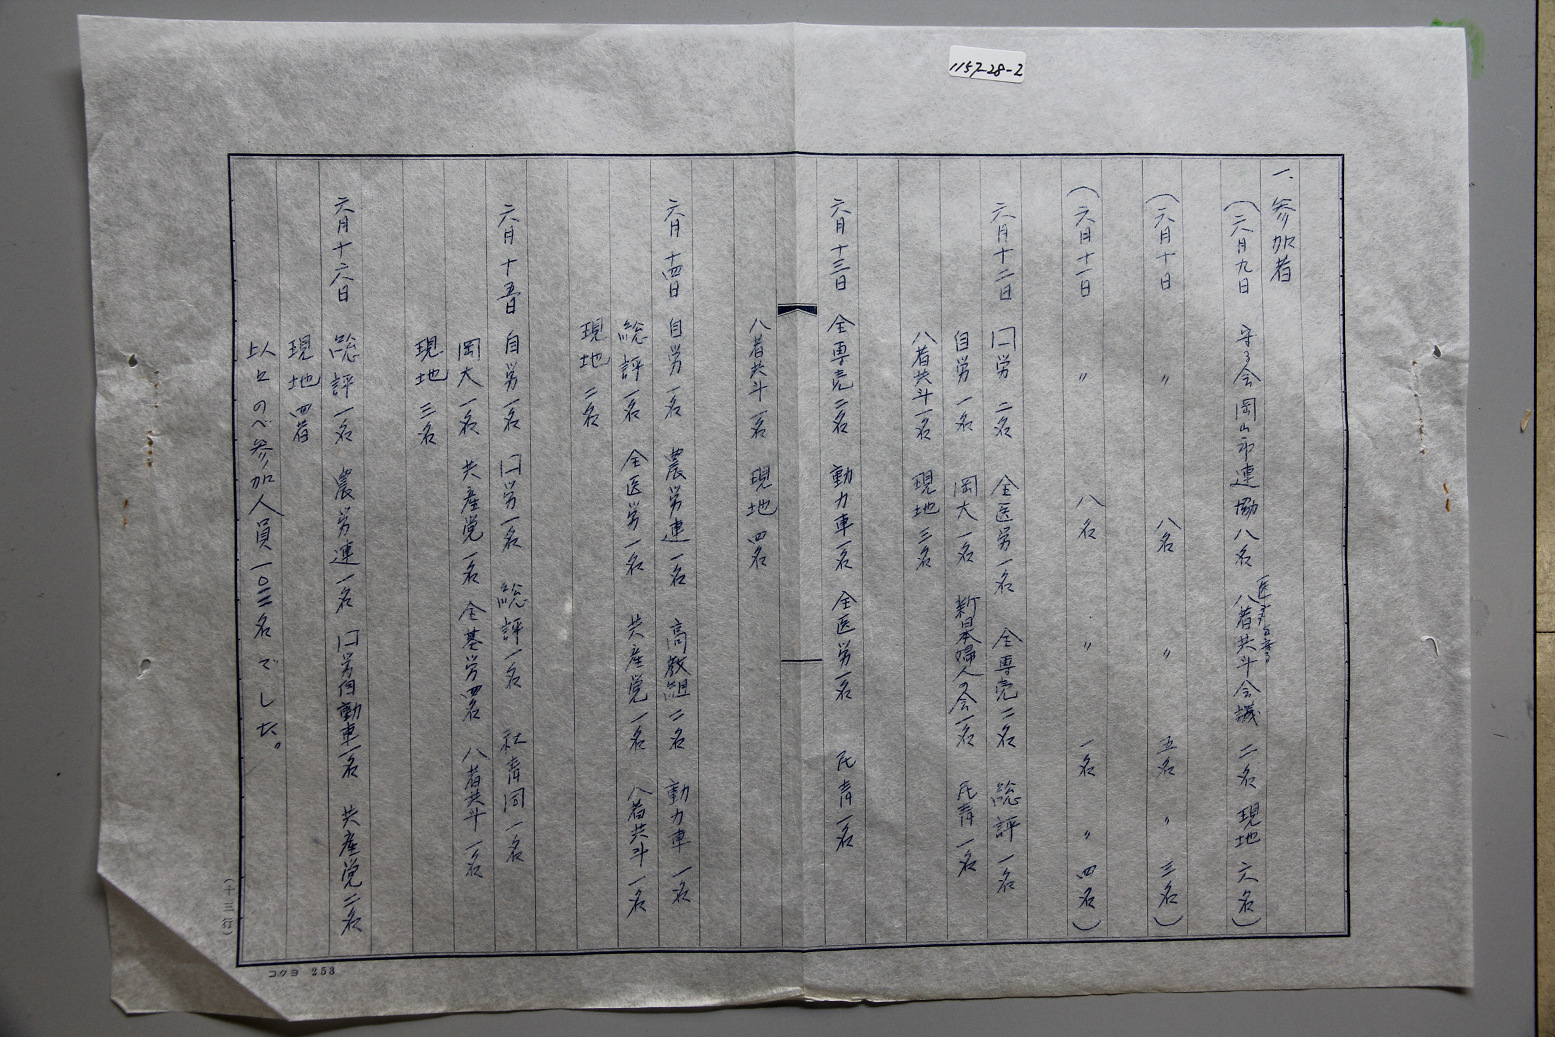 1157-28-2
一、参加者
(六月九日 守る会岡山市連協八名 八者共斗会議 二名 現地 六名)
(六月十日 〃 八名 〃 五名 〃 三名)
(六月十一日 〃 八名 〃 一名 〃 四名)
六月十二日 口労 二名 全医労一名 全専売二名 総評 一名
自労 一名 岡大 一名 新日本婦人の会一名 民青 一名
八者共斗一名 現地 三名
六月十三日 全専売二名 動力車一名 全医労一名 民青一名
八者共斗一名 現地 四名
六月十四日 自労一名 農労連一名 高教組二名 動力車 一名
総評一名 全医労一名 共産党一名 八者共斗一名
現地 二名
六月十五日 自労一名 口労一名 総評一名 社青同一名
岡大 一名 共産党一名 全基労四名 八者共斗一名
現地 三名
六月十六日 総評一名 農労連一名 口労 動車一名 共産党二名
現地 四名
以上 のべ参加人員一〇三名でした。
(十三行)
コクヨ 253